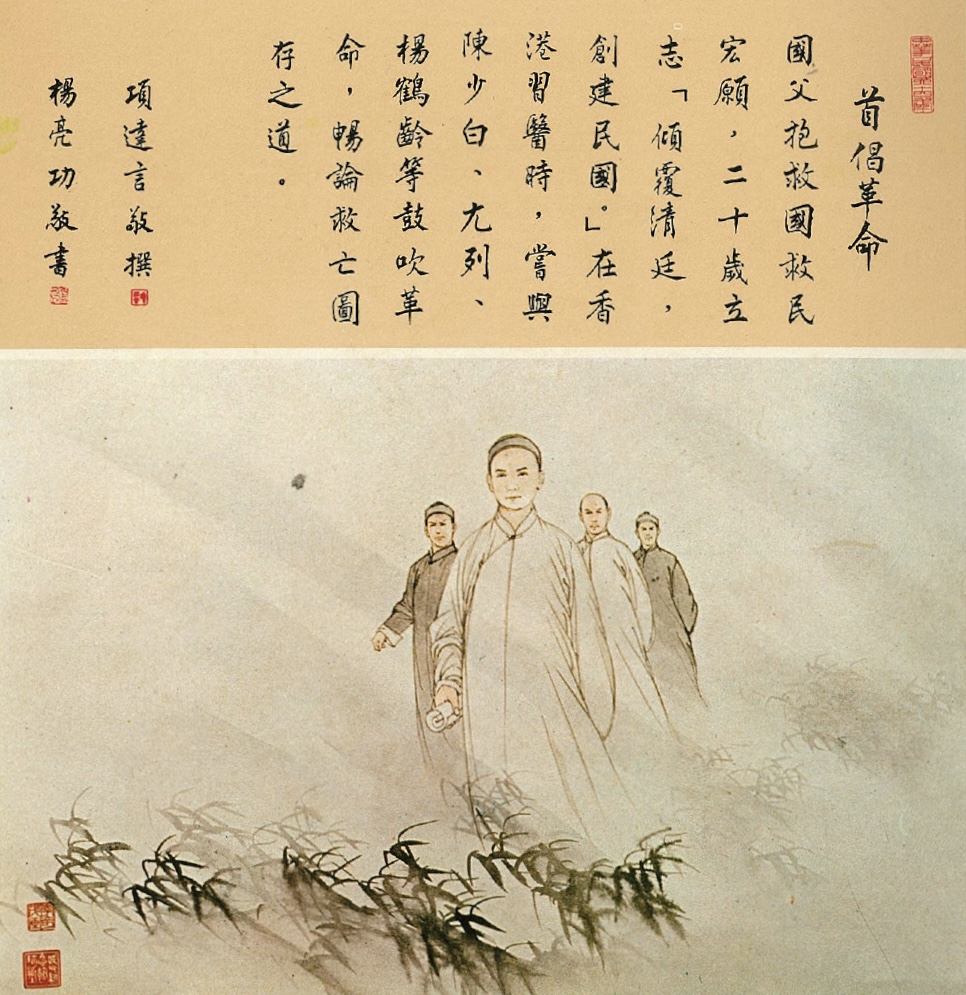 首倡革命
國父抱救國救民
宏願，二十歲立
志「傾覆清廷，
創建民國。」在香
港習醫時，嘗與
陳少白、尢列、
楊鶴齡等鼓吹革
命，暢論救亡圖
存之道。
項達言敬撰
楊亮功敬書